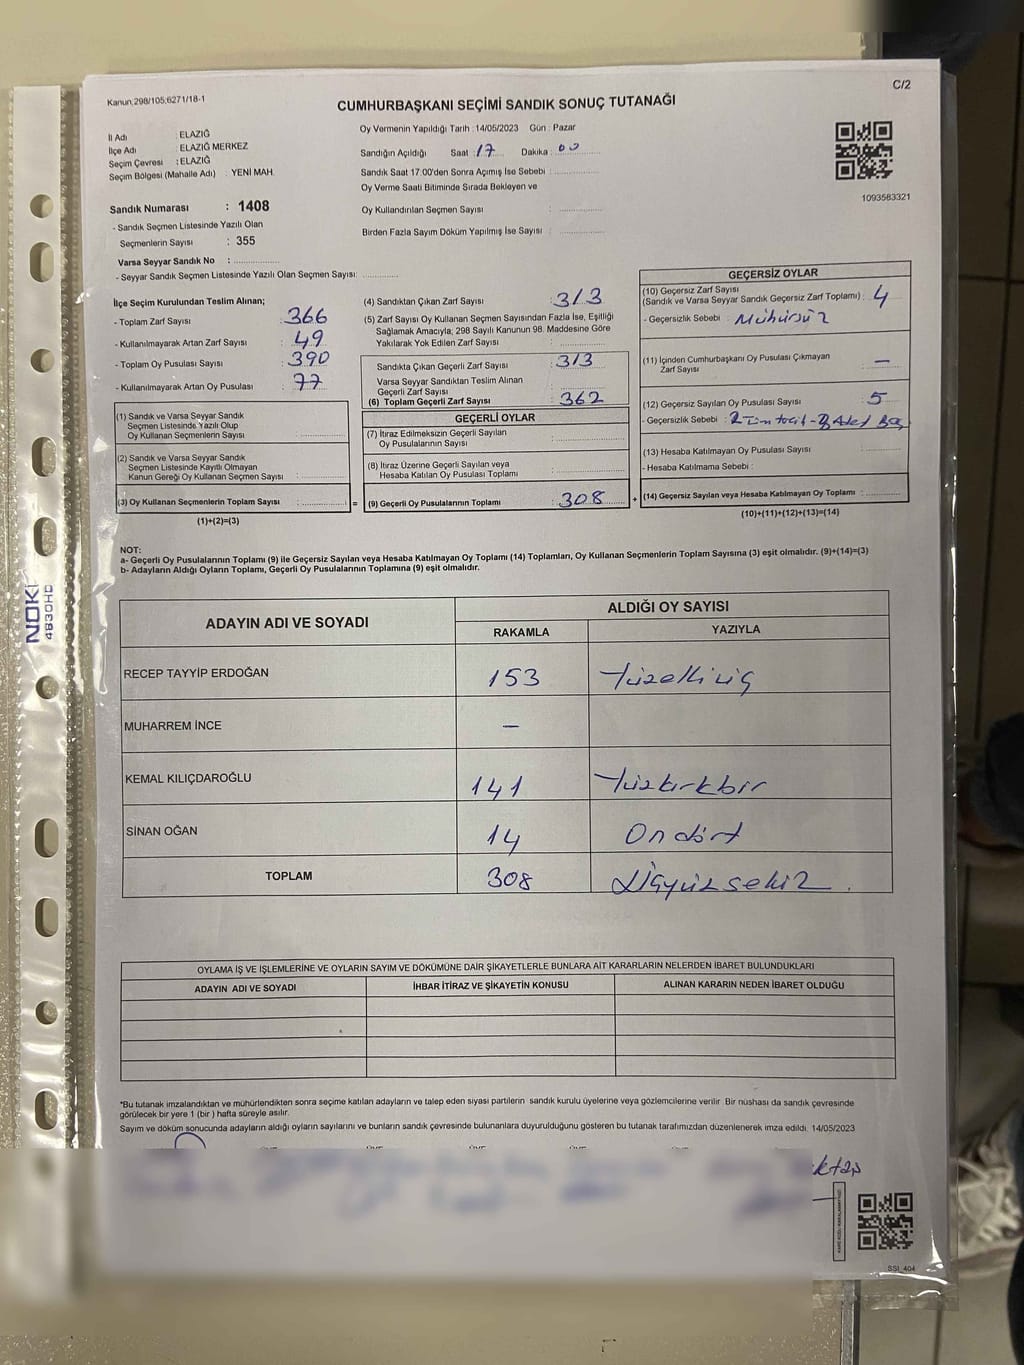 C/2
Kanun;298/105;6271/18-1
CUMHURBAŞKANI SEÇİMİ SANDIK SONUÇ TUTANAĞI
İl Adı : ELAZIĞ
İlçe Adı : ELAZIĞ MERKEZ
Seçim Çevresi : ELAZIĞ
Seçim Bölgesi (Mahalle Adı) : YENİ MAH.
Sandık Numarası : 1408
- Sandık Seçmen Listesinde Yazılı Olan
Seçmenlerin Sayısı : 355
Varsa Seyyar Sandık No : ..................
- Seyyar Sandık Seçmen Listesinde Yazılı Olan Seçmen Sayısı: .............
Oy Vermenin Yapıldığı Tarih : 14/05/2023 Gün : Pazar
Sandığın Açıldığı Saat : 17 Dakika : 00
Sandık Saat 17.00'den Sonra Açımış İse Sebebi : ..............
Oy Verme Saati Bitiminde Sırada Bekleyen ve
Oy Kullandırılan Seçmen Sayısı : ..............
Birden Fazla Sayım Döküm Yapılmış İse Sayısı : ..............
1093583321
İlçe Seçim Kurulundan Teslim Alınan;
- Toplam Zarf Sayısı : 366
- Kullanılmayarak Artan Zarf Sayısı : 49
- Toplam Oy Pusulası Sayısı : 390
- Kullanılmayarak Artan Oy Pusulası : 77
(1) Sandık ve Varsa Seyyar Sandık
Seçmen Listesinde Yazılı Olup
Oy Kullanan Seçmenlerin Sayısı :
(2) Sandık ve Varsa Seyyar Sandık
Seçmen Listesinde Kayıtlı Olmayan
Kanun Gereği Oy Kullanan Seçmen Sayısı :
(3) Oy Kullanan Seçmenlerin Toplam Sayısı : =
(1)+(2)=(3)
(4) Sandıktan Çıkan Zarf Sayısı : 313
(5) Zarf Sayısı Oy Kullanan Seçmen Sayısından Fazla İse, Eşitliği
Sağlamak Amacıyla; 298 Sayılı Kanunun 98. Maddesine Göre
Yakılarak Yok Edilen Zarf Sayısı :
Sandıkta Çıkan Geçerli Zarf Sayısı : 313
Varsa Seyyar Sandıktan Teslim Alınan
Geçerli Zarf Sayısı :
(6) Toplam Geçerli Zarf Sayısı : 362
GEÇERLİ OYLAR
(7) İtiraz Edilmeksizin Geçerli Sayılan
Oy Pusulalarının Sayısı :
(8) İtiraz Üzerine Geçerli Sayılan veya
Hesaba Katılan Oy Pusulası Toplamı :
(9) Geçerli Oy Pusulalarının Toplamı : 308 +
GEÇERSİZ OYLAR
(10) Geçersiz Zarf Sayısı
(Sandık ve Varsa Seyyar Sandık Geçersiz Zarf Toplamı) : 4
- Geçersizlik Sebebi : Mühürsüz
(11) İçinden Cumhurbaşkanı Oy Pusulası Çıkmayan
Zarf Sayısı : —
(12) Geçersiz Sayılan Oy Pusulası Sayısı : 5
- Geçersizlik Sebebi : 2 Adet
(13) Hesaba Katılmayan Oy Pusulası Sayısı :
- Hesaba Katılmama Sebebi :
(14) Geçersiz Sayılan veya Hesaba Katılmayan Oy Toplamı :
(10)+(11)+(12)+(13)=(14)
NOT:
a- Geçerli Oy Pusulalarının Toplamı (9) ile Geçersiz Sayılan veya Hesaba Katılmayan Oy Toplamı (14) Toplamları, Oy Kullanan Seçmenlerin Toplam Sayısına (3) eşit olmalıdır. (9)+(14)=(3)
b- Adayların Aldığı Oyların Toplamı, Geçerli Oy Pusulalarının Toplamına (9) eşit olmalıdır.
ADAYIN ADI VE SOYADI ALDIĞI OY SAYISI
RAKAMLA YAZIYLA
RECEP TAYYİP ERDOĞAN 153 Yüzelliüç
MUHARREM İNCE —
KEMAL KILIÇDAROĞLU 141 Yüzkırkbir
SİNAN OĞAN 14 Ondört
TOPLAM 308 Üçyüzsekiz
OYLAMA İŞ VE İŞLEMLERİNE VE OYLARIN SAYIM VE DÖKÜMÜNE DAİR ŞİKAYETLERLE BUNLARA AİT KARARLARIN NELERDEN İBARET BULUNDUKLARI
ADAYIN ADI VE SOYADI İHBAR İTİRAZ VE ŞİKAYETİN KONUSU ALINAN KARARIN NEDEN İBARET OLDUĞU
*Bu tutanak imzalandıktan ve mühürlendikten sonra seçime katılan adayların ve talep eden siyasi partilerin sandık kurulu üyelerine veya gözlemcilerine verilir. Bir nüshası da sandık çevresinde
görülecek bir yere 1 (bir ) hafta süreyle asılır.
Sayım ve döküm sonucunda adayların aldığı oyların sayılarını ve bunların sandık çevresinde bulunanlara duyurulduğunu gösteren bu tutanak tarafımızdan düzenlenerek imza edildi. 14/05/2023
SSI_404
NOKİ
4830HD